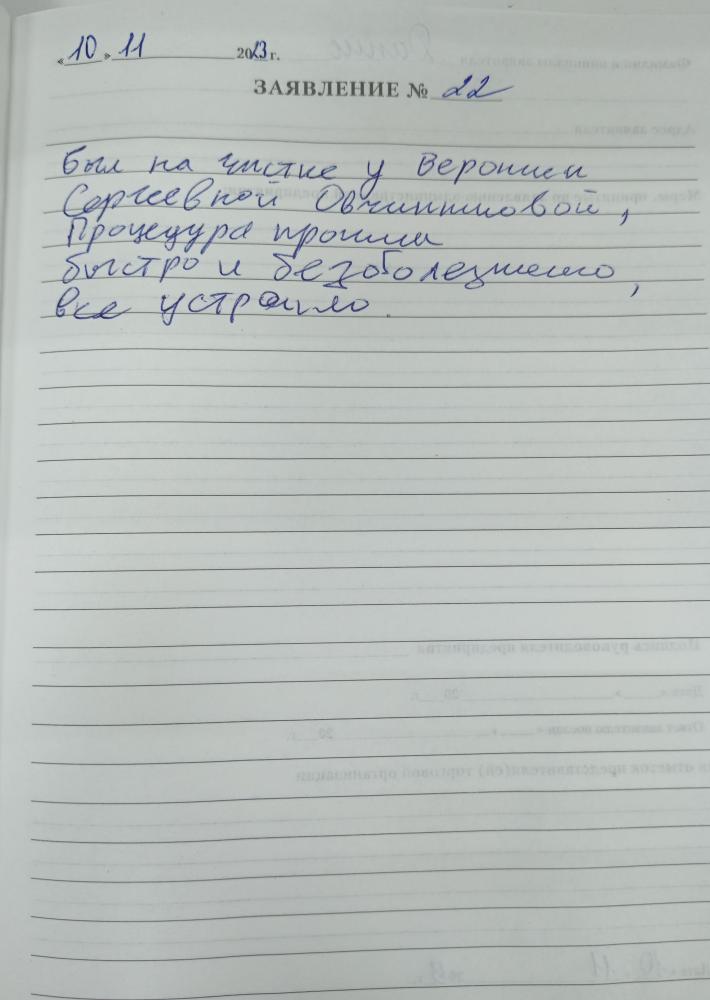 «10» 11 2023 г.
ЗАЯВЛЕНИЕ № 22
был на чистке у Вероники
Сергеевной Овчинниковой,
Процедура прошла
быстро и безболезненно,
все устроило.
Подпись руководителя предприятия